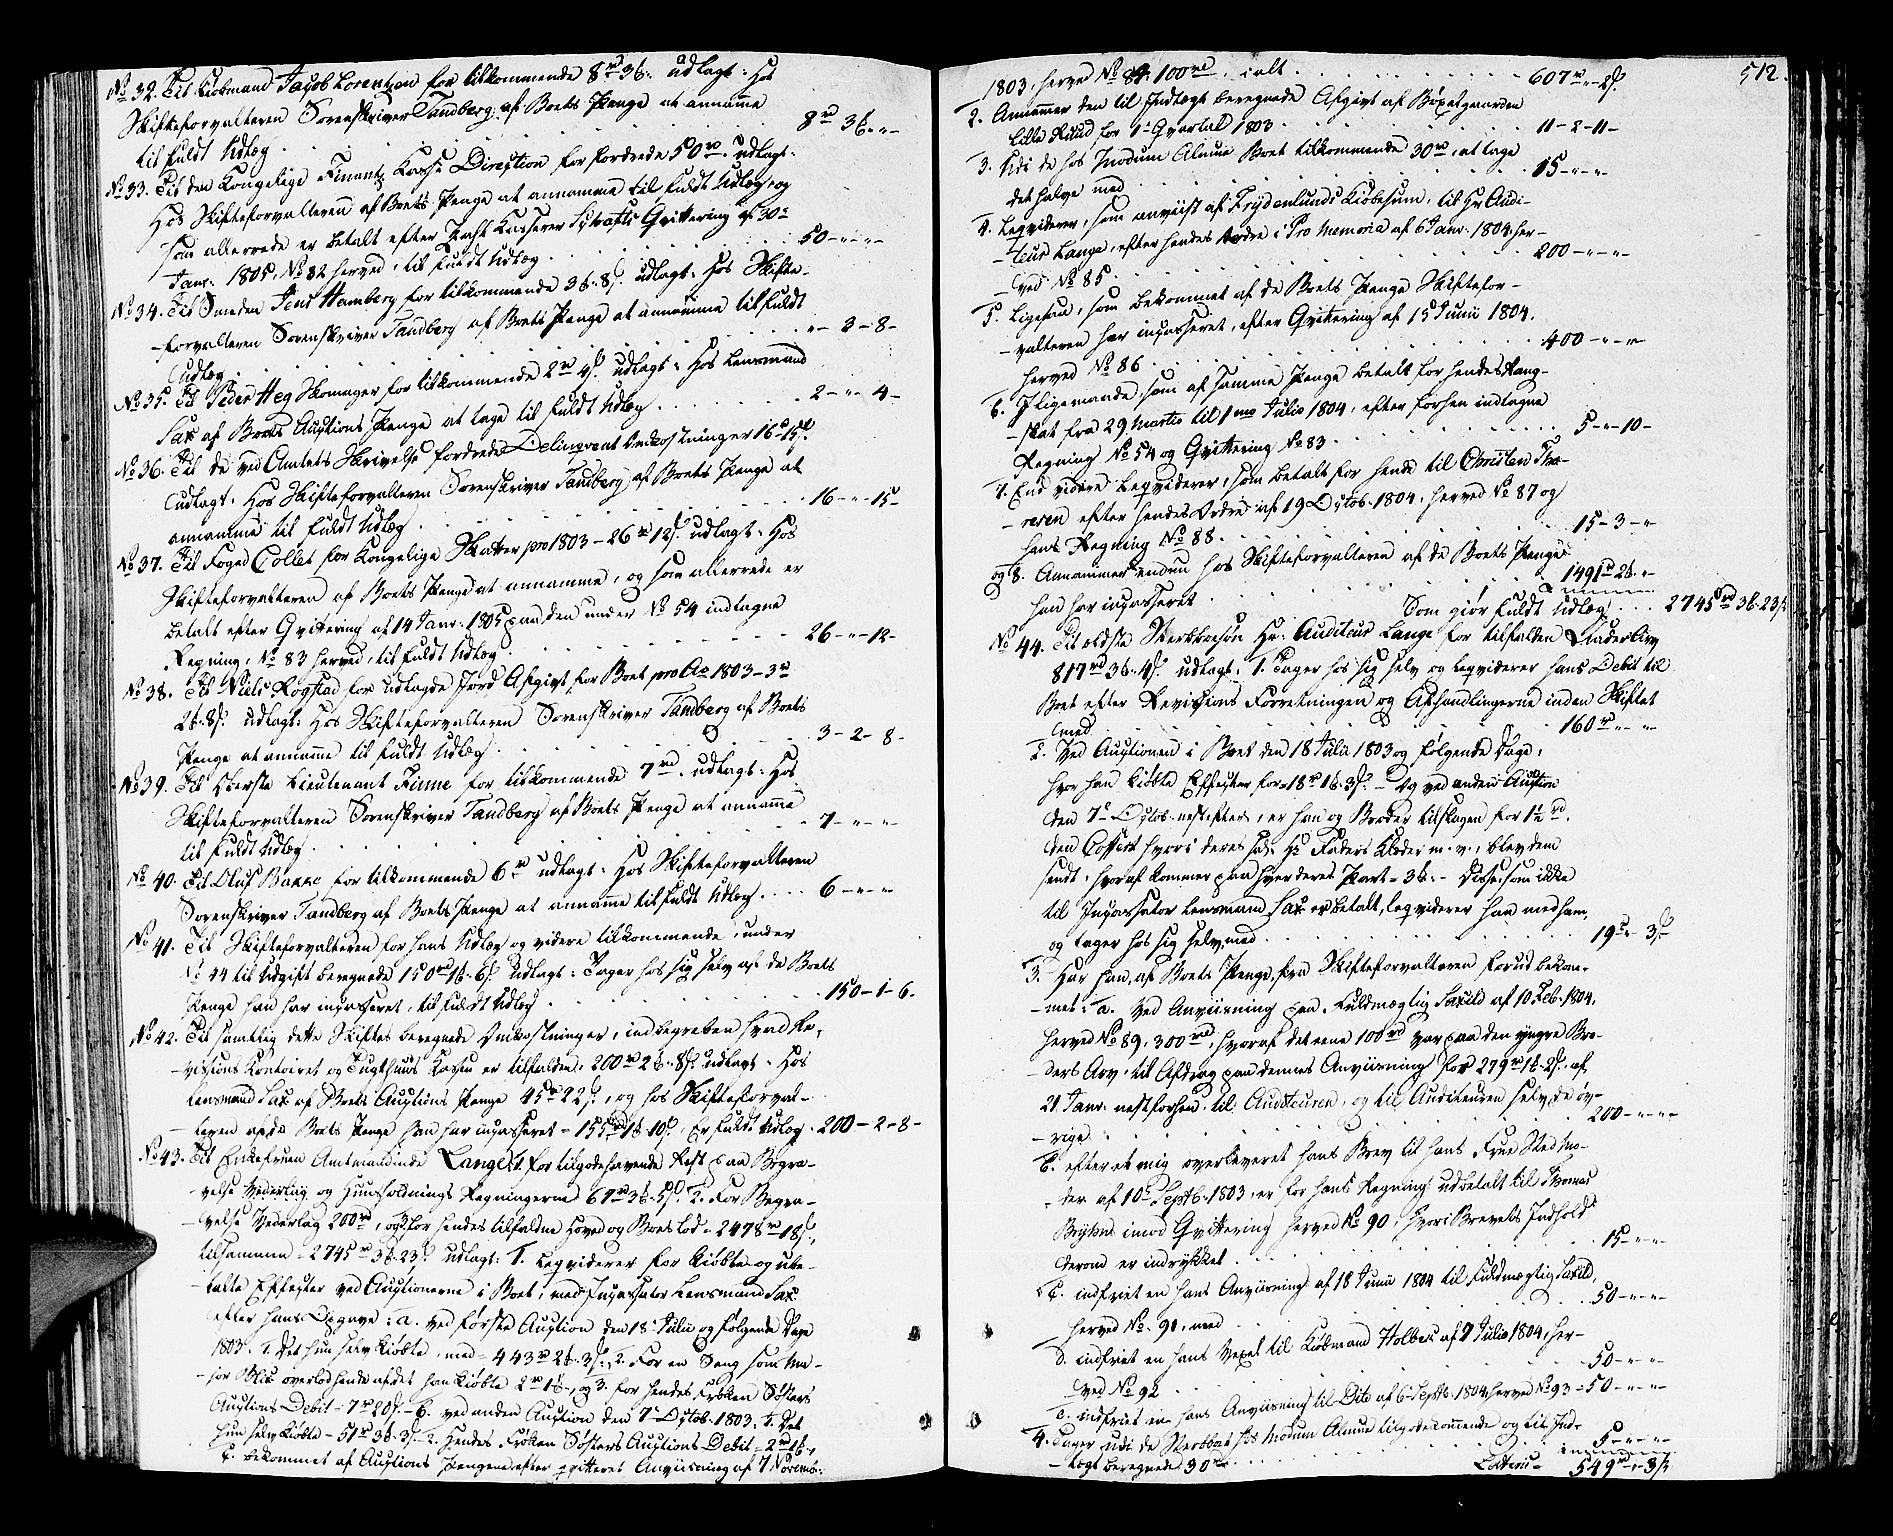 No 32. Til Kiøbmand Jacob Lorentzen for tilkommende 8rd 3b. udlagt: Hos
Skifteforvalteren Sorenskriver Tandberg af Boets Penge at annamme
til fuldt Udlæg . . . 8rd 3b „ -
No 33. Til den Kongelige Finantz Kasse Direction for fordrede 50rd. udlagt:
Hos Skifteforvalteren af Boets Penge at annamme til fuldt Udlæg, og
som allerrede er betalt efter Kasserer Qvittering af 30te
Janr. 1805, No 82 herved, til fuldt Udlæg . . . 50 - „ - „ -
No 34. Til Smeden Jens Hamberg for tilkommende 3b. 8s. udlagt: Hos Skifte-
-forvalteren Sorenskriver Tandberg af Boets Penge at annamme til fuldt
Udlæg . . . „ - 3 - 8 -
No 35. Til Peder Heg Skomager for tilkommende 2rd 4s. udlagt: Hos Lensmand
Sax af Boets Auctions Penge at tage til fuldt Udlæg . . . 2 - „ - 4 -
No 36. Til de ved Amtets Skrivelse fordrede Delinqvent Omkostninger 16rd 15s.
Udlagt: Hos Skifteforvalteren Sorenskriver Tandberg af Boets Penge at
annamme til fuldt Udlæg . . . 16 - „ - 15 -
No 37. Til Foged Collet for Kongelige Skatter pro 1803 - 26rd 12s. udlagt: Hos
Skifteforvalteren af Boets Penge at annamme, og som allerrede er
betalt efter Qvittering af 14 Janr. 1805 paa den under No 54 indtagne
Regning, No 83 herved, til fuldt Udlæg . . . 26 - „ - 12 -
No 38. Til Niels Rogstad for udlagde Jord Afgivt for Boet pro Ao 1803 - 3rd
2b. 8s. udlagt: Hos Skifteforvalteren Sorenskriver Tandberg af Boets
Penge at annamme til fuldt Udlæg . . . 3 - 2 - 8 -
No 39. Til Oberste Lieutenant Finne for tilkommende 7rd. udlagt: Hos
Skifteforvalteren Sorenskriver Tandberg af Boets Penge at annamme
til fuldt Udlæg . . . 7 - „ - „ -
No 40. Til Oluf Bakke for tilkommende 6rd udlagt: Hos Skifteforvalteren
Sorenskriver Tandberg af Boets Penge at annamme til fuldt Udlæg . . . 6 - „ - „ -
No 41. Til Skifteforvalteren for hans Udlæg og videre tilkommende, under
No 44 til Udgift beregnede 150rd 1b. 6s. udlagt: Tager hos sig selv af de Boets
Penge han har incasseret, til fuldt Udlæg . . . 150 - 1 - 6.
No 42. Til samtlig dette Skiftes beregnede Omkostninger, indbegreben hvad Re-
-visions Kontoiret og Tugthuus Kassen er tilfalden, 200rd 2b. 8s. udlagt: Hos
Lensmand Sax af Boets Auctions Penge 45rd 22s., og hos Skifteforval-
-teren af de Boets Penge han har incasseret - 155rd 1b. 10s. Er fuldt Udlæg . 200 - 2 - 8 -
No 43. Til Enkefruen Amtmandinde Lange, 1. for tilgodehavende Rest paa Begra-
-velse Vederlag og Huusholdnings Regningerne 67rd 3b. 5s. 2. For Begra-
-velse Vederlag 200rd, og 3. for hendes tilfaldne Hoved og Boes Lod - 2478rd 18s.,
tilsammen - 2745rd 3b. 23s. udlagt: 1. Leqviderer for kiøbte og ube-
-talte Effecter ved Auctionerne i Boet, med Incassator Lensmand Sax
efter hans Opgave: a. ved første Auction den 18 Julii og følgende Dage
1803. 1. Det hun selv kiøbte, med - 443rd 2b. 3s., 2. For en Seng som Ma-
-jor overlod hende af det han kiøbte 2rd 1b., og 3. for hendes Frøken Søsters
Auctions Debit - 7rd 20s. - b. ved anden Auction den 7de Octob. 1803. 1. Det
hun selv kiøbte - 51rd 3b. 3s. - 2. Hendes Frøken Søsters Auctions Debit - 2rd 1b.,
c. bekommet af Auctions Pengene efter qvitteret Anviisning af 7 Novemb:
512.
1803, herved No 84. 100rd, i alt . . . 607rd „ 2s.
2. Annammer den til Indtægt beregnede Afgivt af Bøxelgaarden
Lille Ruud for 1te Qvartal 1803 . . . 11 - 2 - 11 -
3. Udi de hos Modum Almue Boet tilkommende 30rd, at tage
det halve med . . . 15 - „ - „ -
4. Leqviderer, som anviist af Frydenlunds Kiøbesum, til Hr Audi-
-teur Lange, efter hendes Ordre i Pro Memoria af 6 Janr. 1804 her-
-ved No 85 . . . 200 - „ - „ -
5. Ligesaa, som bekommet af de Boets Penge Skiftefor-
-valteren har incasseret, efter Qvittering af 15 Junii 1804,
herved No 86 . . . 400 - „ - „ -
6. Iligemaade, som af samme Penge betalt for hendes Rang-
-skat fra 29 Martii til 1mo Julii 1804, efter forhen indtagne
Regning No 54 og Qvittering No 83 . . . 5 - „ - 10 -
7. End videre Leqviderer, som betalt for hende til Christen Tho-
-resen efter hendes Ordre af 19 Octob. 1804, herved No 87 og
hans Regning No 88 . . . 15 - 3 - „
og 8. Annammer endnu hos Skifteforvalteren af de Boets Penge
han har incasseret . . . 1491rd 2b. „
Som giør fuldt Udlæg . . . 2745rd 3b. 23s.
No 44. Til ældste Sterbboesøn Hr. Auditeur Lange for tilfalden Faderarv
817rd 3b. 4s. udlagt: 1. Tager hos sig selv og leqviderer hans Debit til
Boet efter Revisions Forretningen og Afhandlingerne inden Skiftet
med . . . 160rd „ - „ -
2. Ved Auctionen i Boet den 18 Julii 1803 og følgende Dage,
hvor han kiøbte Effecter for - 18rd 1b. 3s. - Og ved anden Auction
den 7de Octob. nestefter, er han og Broder tilslagen for 1½rd.
den Coffert hvori deres Sal. Hr Faders Klæder m. v. blev dem
sendt, hvoraf kommer paa hver deres Part - 3b. - Disse, som ikke
til Incassator Lensmand Sax er betalt, leqviderer han med ham,
og tager hos sig selv, med . . . 19rd „ 3s.
3. Har han, af Boets Penge, fra Skifteforvalteren forud bekom-
-met: a. Ved Anviisning paa Fuldmægtig Saxild af 10 Feb. 1804,
herved No 89. 300rd, hvoraf det eene 100rd var paa den yngre Bro-
-ders Arv, til Afdrag paa dennes Anviisning for 279rd 1b. 2s. af
21 Janr. nestforhen, til Auditeuren, og til Auditeuren selv de øv-
-rige . . . 200 - „ - „ -
b. efter et mig overleveret hans Brev til hans Frue Sted Mo-
-der af 10de Septb. 1803, er for hans Regning udbetalt til Thomas
imod Qvittering herved No 90, hvori Brevets Indhold
derom er indrykket . . . 15 - „ - „
c. indfriet en hans Anviisning af 18 Junii 1804 til Fuldmægtig Saxild,
herved No. 91, med . . . 50 - „ - „ -
d. indfriet en hans Vexel til Kiøbmand Holber af 7 Julii 1804, her-
ved No 92 . . . 50 - „ - „ -
e. indfriet en hans Anviisning til Dito af 6 Septb. 1804 herved No 93 - 50 - „ - „ -
4. Tager udi de Sterbboet hos Modum Almue tilgodekommende og til Ind-
-tægt beregnede 30rd . . . 5 - „ - „ -
Lateris - 549rd „ 3s